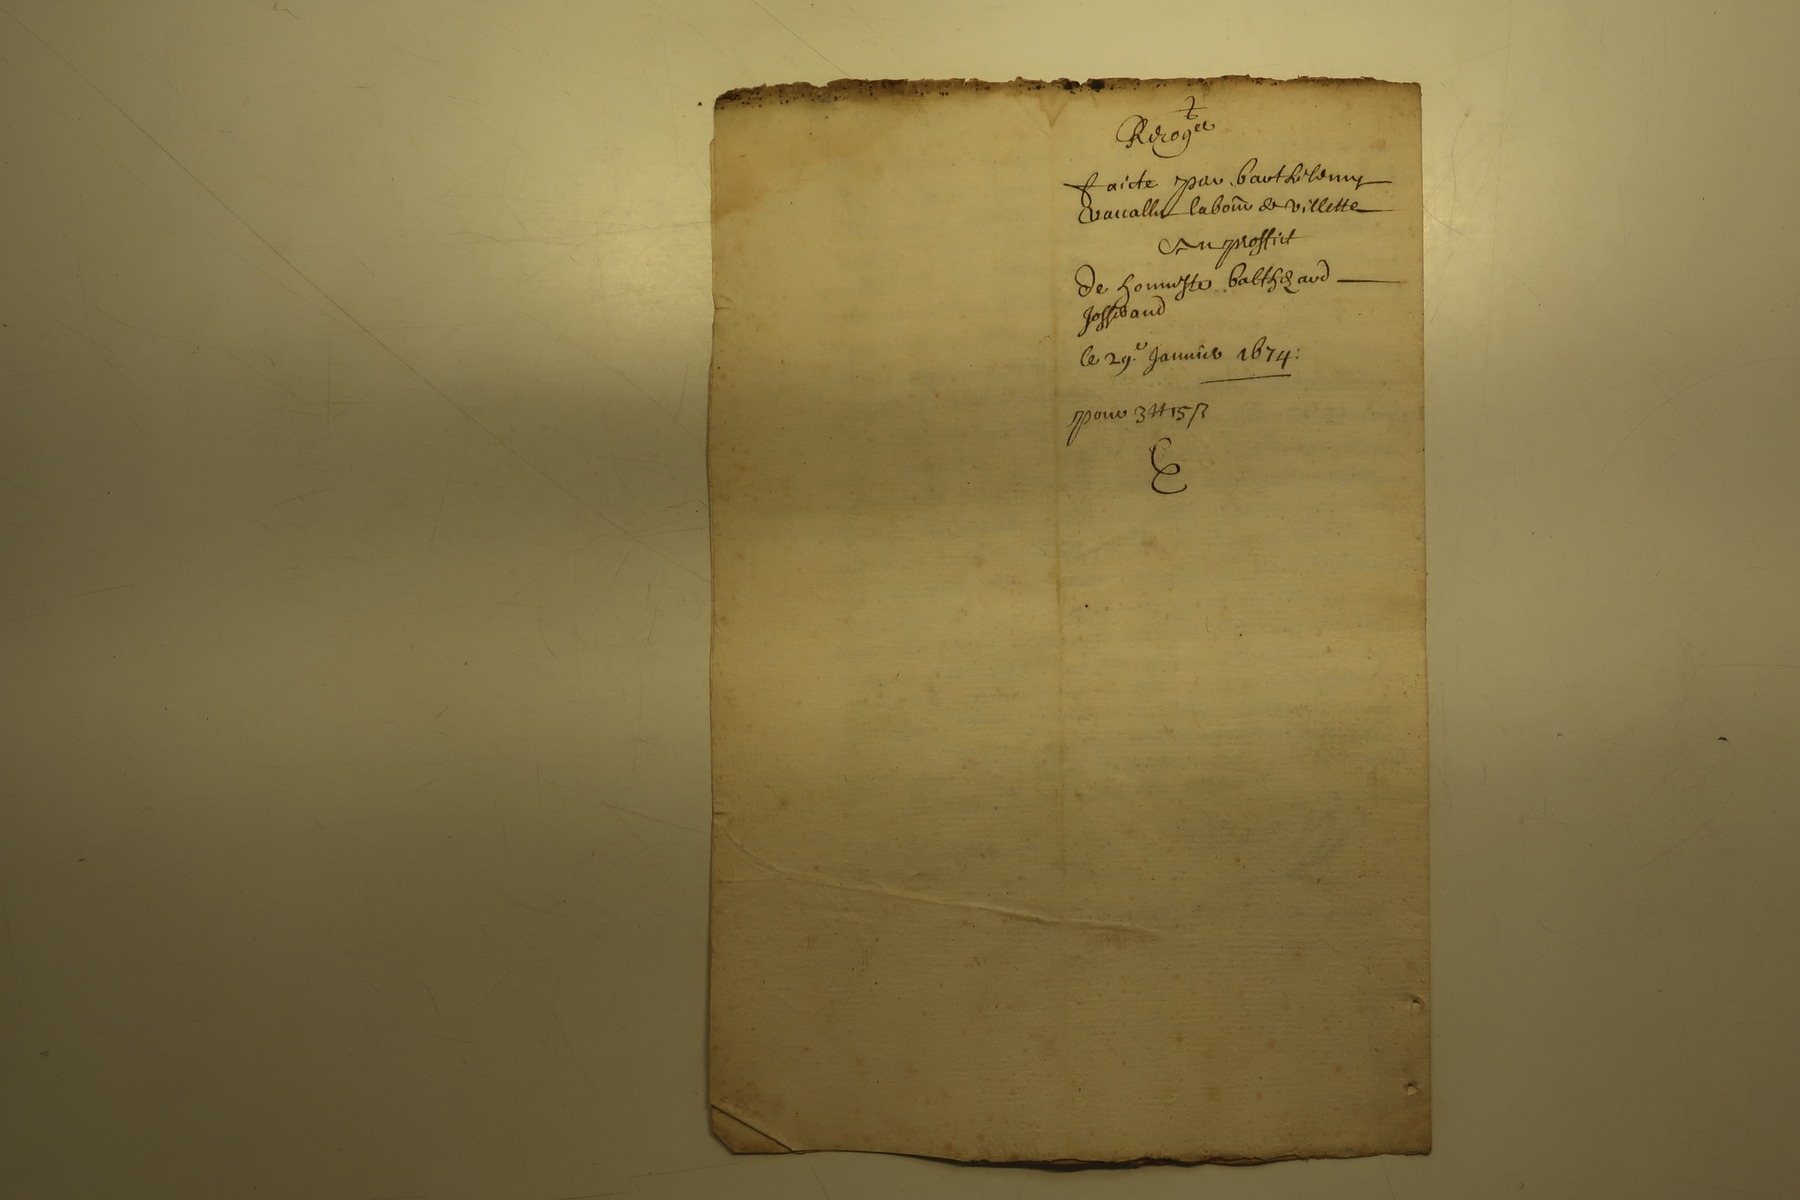 Recog.ce
faicte par barthelemy
vacalle labour de villette
Au proffict
de honneste balthezard
Josserand
le 29.e Janvier 1674:
pour 3 ₶ 15 ß